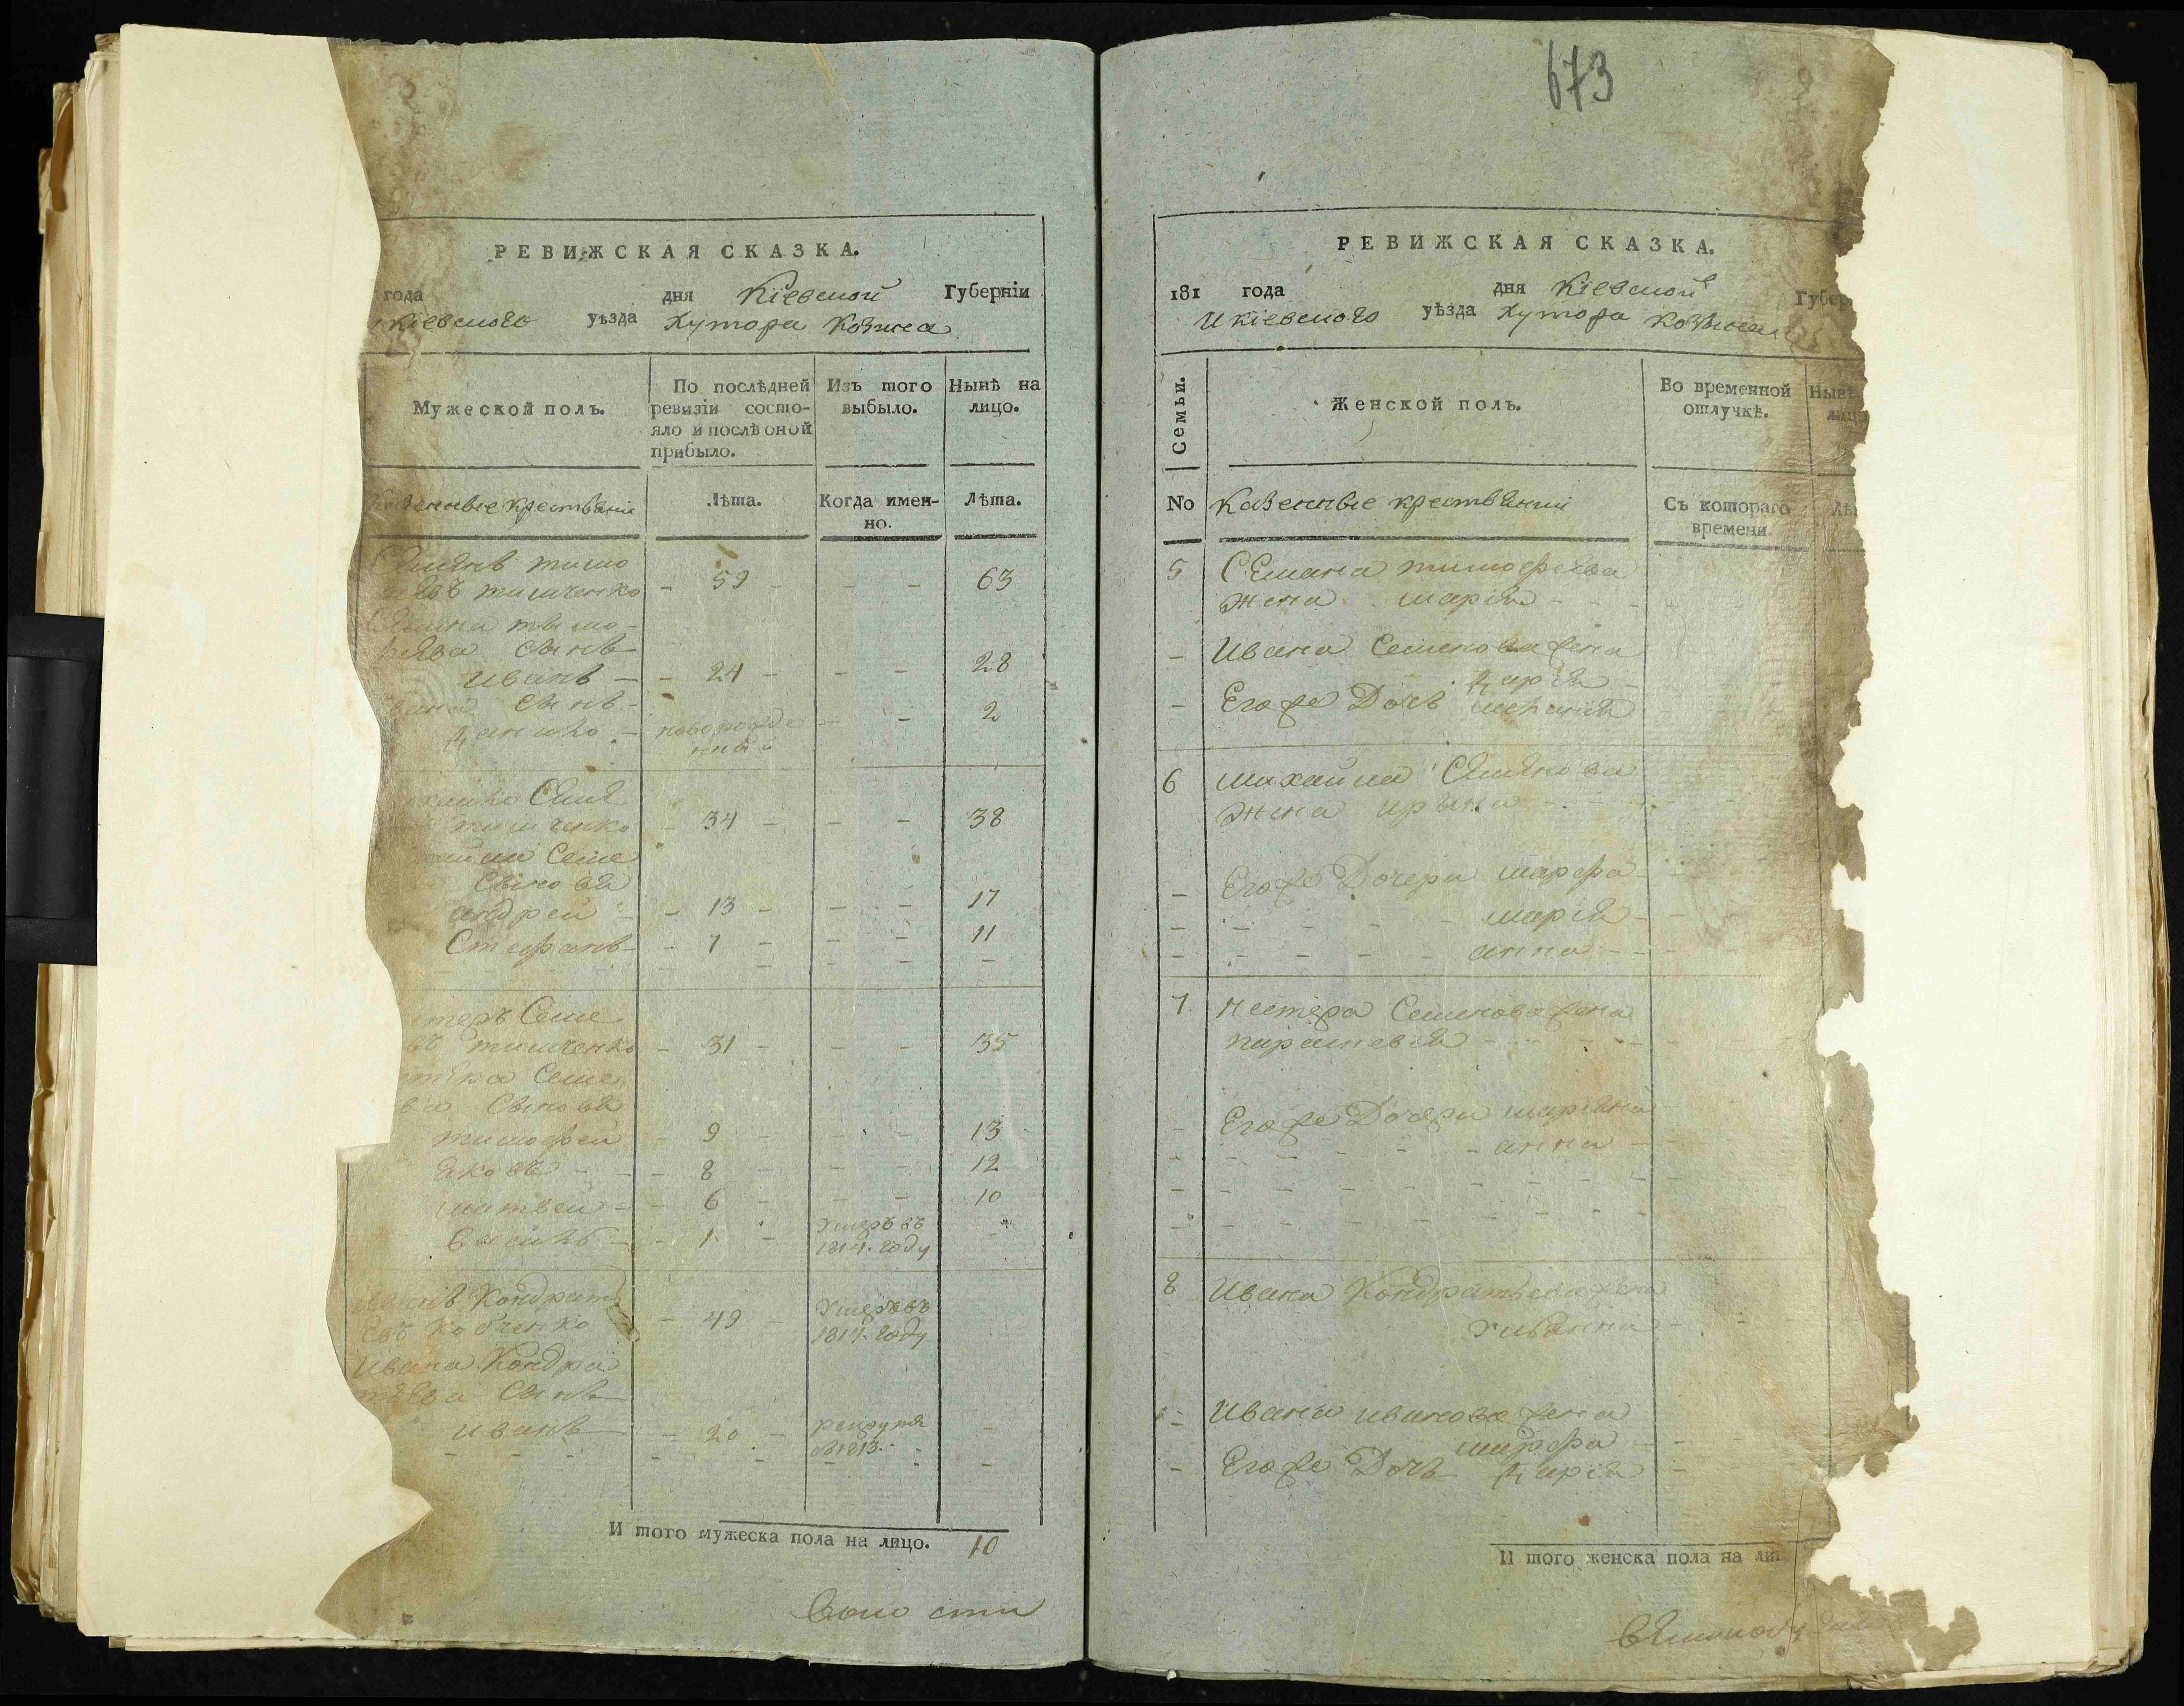 РЕВИЖСКАЯ СКАЗКА.
года дня Кіевской Губерніи
Кіевского уѣзда Хутора Козина
Мужеской полъ.
По послѣдней ревизіи состо-
яло и послѣ оной
прибыло.
Изъ того выбыло.
Нынѣ на лицо.
Казенные крестьяніе
Лѣта.
Когда имен-
но.
Лѣта.
тимо
тимченко - 59 - - - 63
тимо-
сынъ
иванъ - - 24 - - - 28
сынъ -
данило - новорожде
нный - - 2
Семе
тимченко - 34 - - - 38
Семе
Синовя
андрей - - 13 - - - 17
Стефанъ - - 7 - - - 11
Семе
тимченко - 31 - - - 35
Семе
Синовя
тимофей - 9 - - - 13
яковъ - - - 8 - - - 12
матвей - - 6 - - - 10
василь - - 1 - умеръ въ
1814. году -
Кондрат
евъ Кобченко - 49 - умеръ въ
181. году
Ивана Кондра
тьева сынъ
иванъ - 20 - рекрутя
в 1813. -
И того мужеска пола на лицо. 10
Воло сти
673
РЕВИЖСКАЯ СКАЗКА.
181 года дня Кіевской Губер
И кіевского уѣзда Хутора
Семьи.
Женской полъ.
Во временной
отлучкѣ.
Нынѣ
лиц
No
Казенные крестьянии
Съ котораго
времени.
Лѣ
5 Семана тимофеева
жена марія - - -
- Ивана Семенова жена
дарія
- Его же Дочь меланія
6 михайла Семенова
жена ирина - - -
- Его же Дочери марфа -
- - - - марія -
- - - - анна - -
7 нестера Семенова жена
параскевія - - -
- Его же Дочери маріяна
- - - - анна -
8 Ивана Кондратьева жена
улянна -
- Ивана иванова жена
марфа -
- Его же Дочь дарія -
И того женска пола на ли